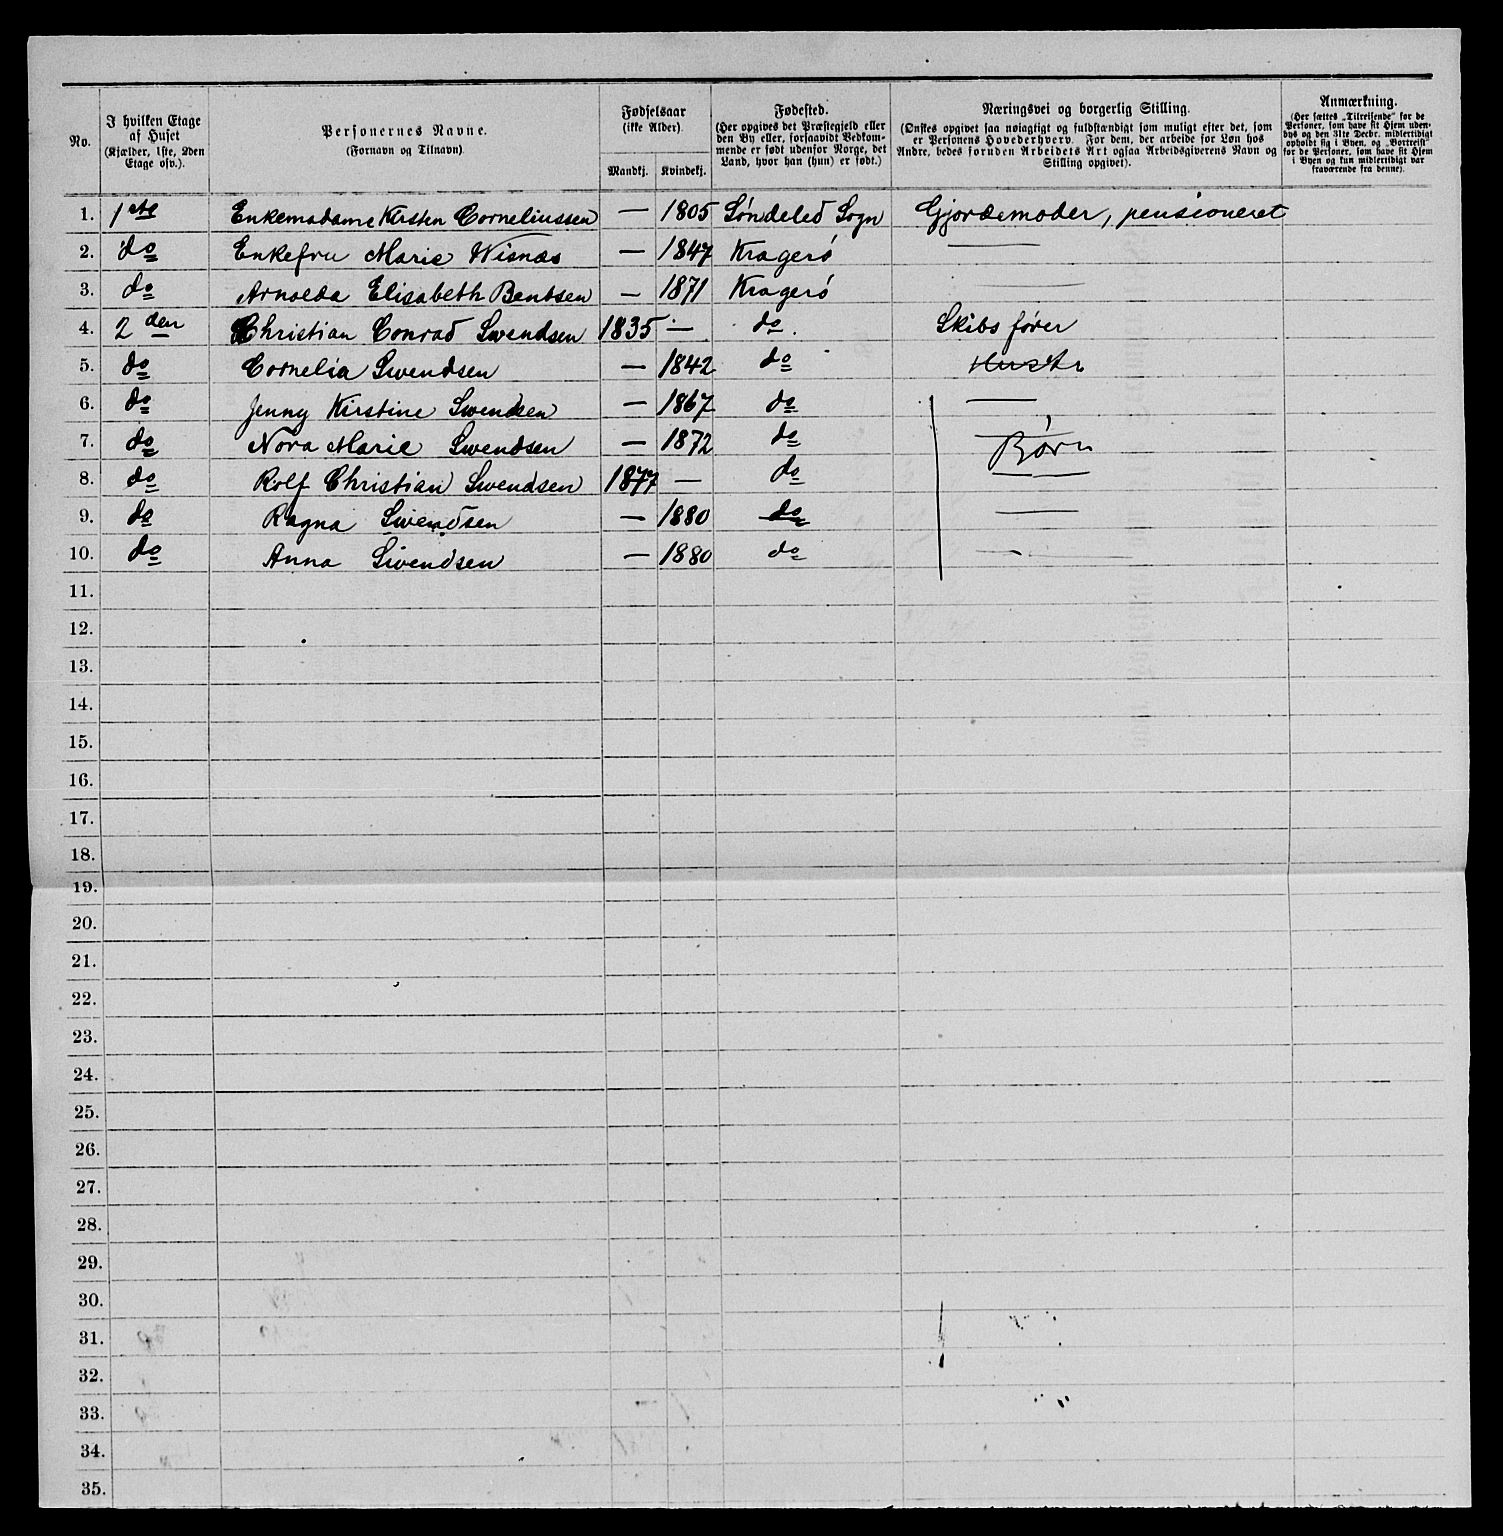 No. | I hvilken Etage af Huset (Kjælder, 1ste, 2den Etage osv.). | Personernes Navne. (Fornavn og Tilnavn) | Fødselsaar (ikke Alder). Mandkj. | Kvindekj. | Fødested. (Her opgives det Præstegjeld eller den By eller, forsaavidt Vedkommende er født udenfor Norge, det Land, hvor han (hun) er født.) | Næringsvei og borgerlig Stilling. (Ønskes opgivet saa nøiagtigt og fuldstændigt som muligt efter det, som er Personens Hovederhverv. For dem, der arbeide for Løn hos Andre, bedes foruden Arbeidets Art ogsaa Arbeidsgiverens Navn og Stilling opgivet). | Anmærkning. (Her sættes „Tilreisende" for de Personer, som have sit Hjem udenbys og den 31te Decbr. midlertidigt opholdt sig i Byen, og „Bortreist" for de Personer, som have sit Hjem i Byen og kun midlertidigt var fraværende fra denne).
1. 1ste Enkemadame Kirsten Corneliussen — 1805 Søndeled Sogn Gjordemoder, pensioneret
2. do Enkefru Marie Wisnæs — 1847 Kragerø —
3. do Arnolda Elisabeth Bentsen — 1871 Kragerø —
4. 2den Christian Conrad Swendsen 1835 — do. Skibsfører
5. do Cornelia Swendsen — 1842 do Hustr
6. do Jenny Kirstine Swendsen — 1867 do —
7. do Nora Marie Swendsen — 1872 do Børn
8. do Rolf Christian Swendsen 1877 — do —
9. do Ragna Swendsen — 1880 do —
10. do Anna Swendsen — 1880 do —
11.
12.
13.
14.
15.
16.
17.
18.
19.
20.
21.
22.
23.
24.
25.
26.
27.
28.
29.
30.
31.
32.
33.
34.
35.